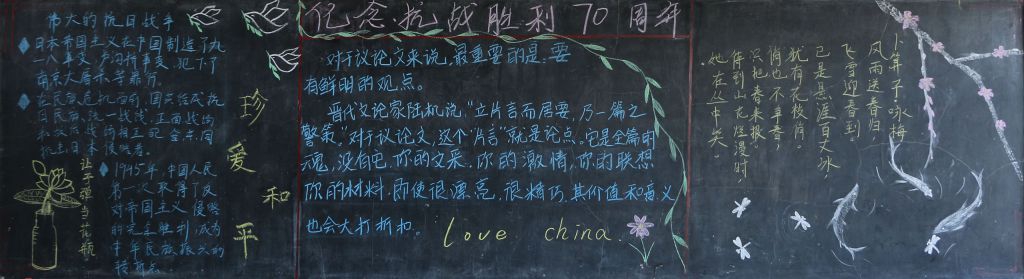 伟大的抗日战争
日本帝国主义在中国制造了九
一八事变、卢沟桥事变，犯下了
南京大屠杀等罪行
在民族危机面前，国共合战抗
日民族统一战线，正面战场
和敌后战场相互配合，共同
抗击日本侵略者
1945年，中国人民
第一次取得了反
对帝国主义侵略
的完全胜利，成为
中华民族振兴的
转折点
让子弹当花瓶
珍爱和平
纪念抗战胜利70周年
对于议论文来说，最重要的是，要
有鲜明的观点。
晋代文论家陆机说，“立片言而居要，乃一篇之
警策。”对于议论文，这个“片言”就是论点。它是全篇的
魂，没有它，你的文采，你的激情，你的联想
你的材料，即使很漂亮，很精巧，其价值和意义
也会大打折扣。
love china.
卜算子·咏梅
风雨送春归，
飞雪迎春到
已是悬崖百丈冰
犹有花枝俏。
俏也不争春，
只把春来报。
待到山花烂漫时，
她在丛中笑。